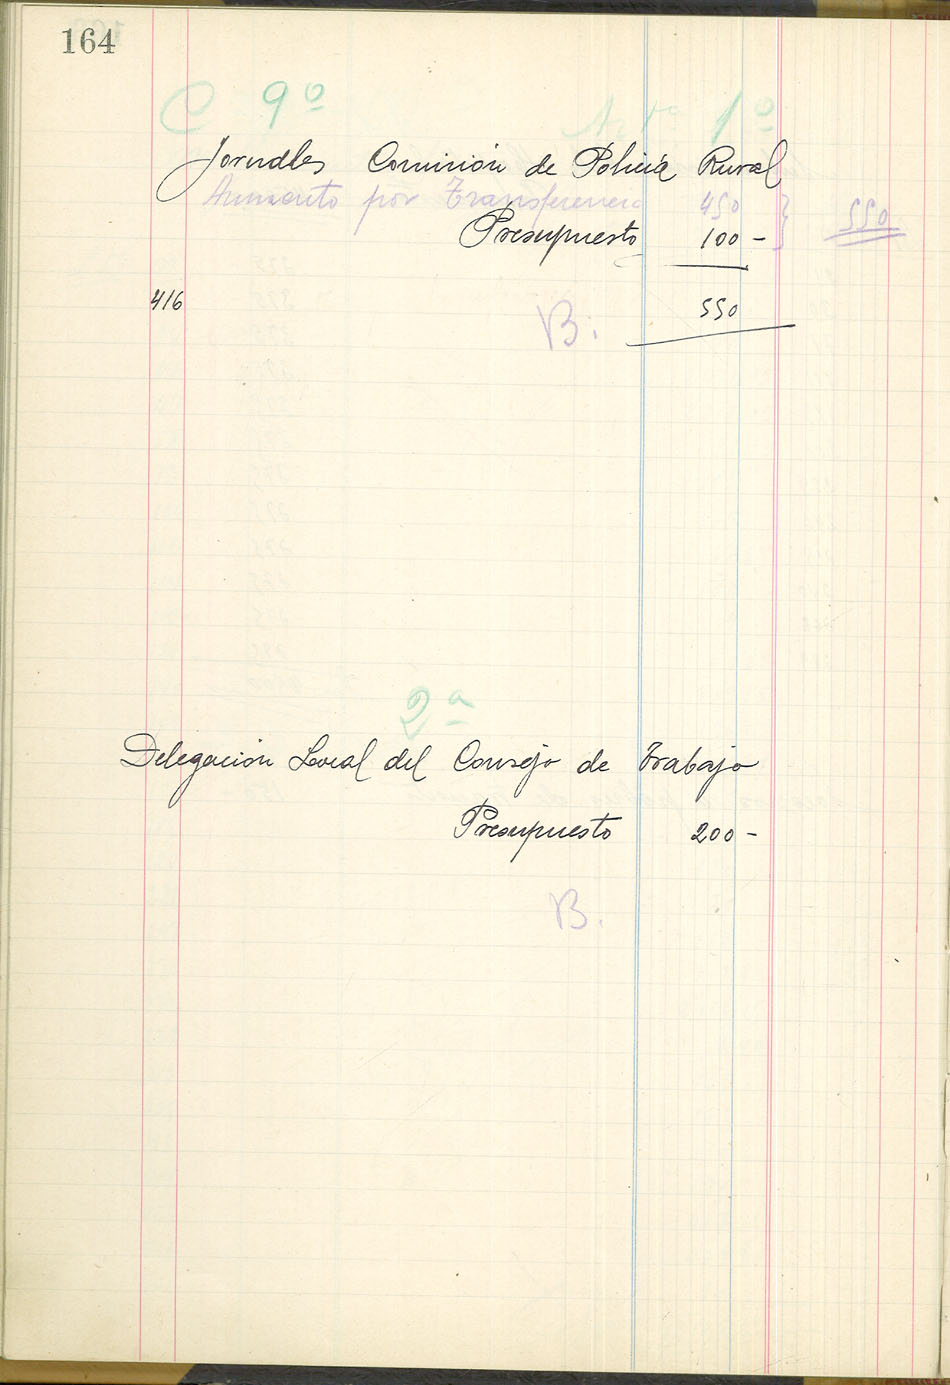 164
C 9º Artº 1º
Jornales Comisión de Policia Rural
Aumento por Transferencia 450 } 550
Presupuesto 100 -
416 B: 550
2ª
Delegación Local del Consejo de Trabajo
Presupuesto 200 -
B.